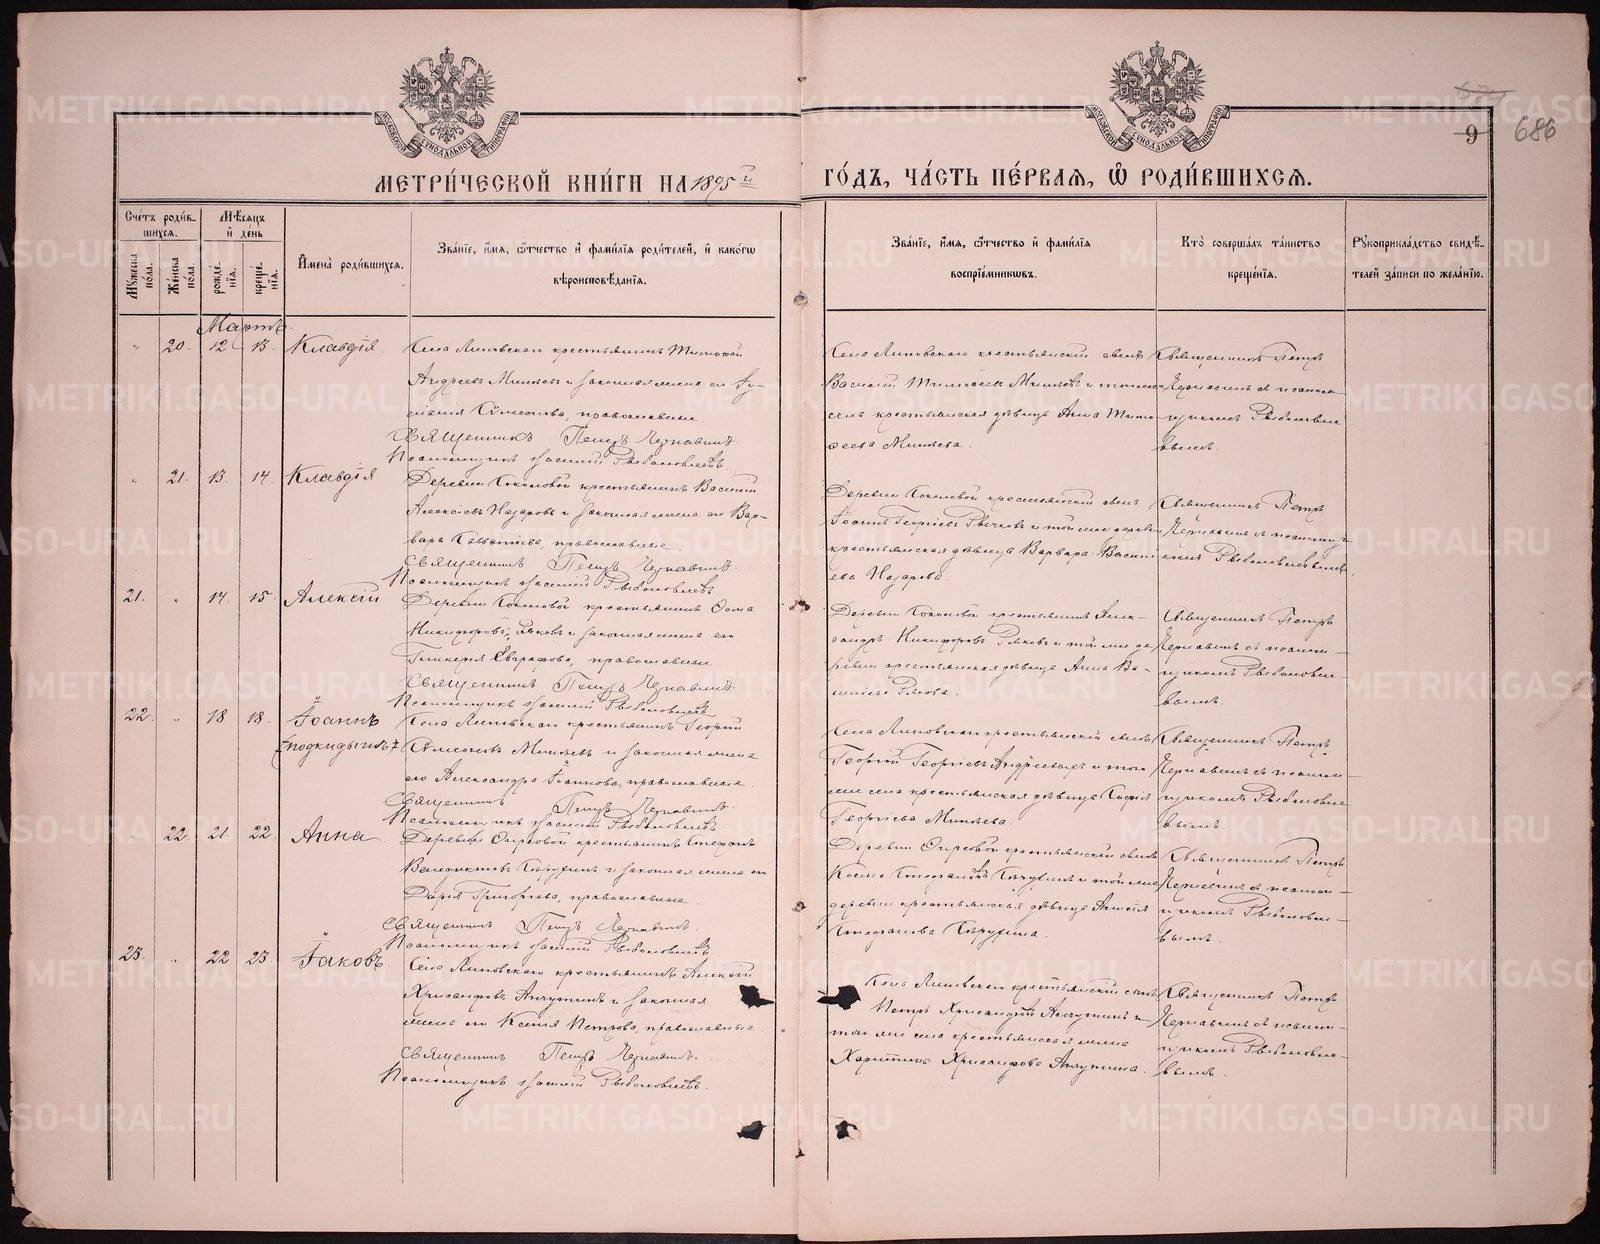 МЕТРИ́ЧЕСКОЙ КНИ́ГИ НА 1895 й ГО́ДЪ, ЧА́СТЬ ПЕ́РВАЯ, Ѡ РОДИ́ВШИХСЯ.
9 686
Сче́тъ роди́вшихся.
Му́жеска по́ла.
Же́нска по́ла.
Мѣ́сяцъ и де́нь
рожде́нія.
креще́нія.
Имена̀ роди́вшихся.
Зва́ніе, и́мя, ѻ́тчество и фами́лія роди́телей, и како́гѡ
вѣроисповѣ́данія.
Зва́ніе, и́мя, ѻ́тчество и фами́лія
воспріе́мникѡвъ.
Кто̀ соверша́лъ та́инство
креще́нія.
Рꙋкоприкла́дство свидѣ́-
телей за́писи по жела́нію.
Мартъ.
" 20. 12 13. Клавдія
Села Липовскаго крестьянинъ Тимофей
Андреевъ Миняевъ и законная жена его
Сѵмеонова, православные.
Священникъ Петръ Чернавинъ.
Псаломщикъ Василій Рыболовлевъ.
Села Липовскаго крестьянскій сынъ
Василій Тимофеевъ Миняевъ и тогоже
села крестьянская дѣвица Анна Тимо
феева Миняева.
Священникъ Петръ
Чернавинъ съ псалом-
щикомъ Рыболовле
вымъ.
" 21. 13. 14. Клавдія
Деревни Соколовой крестьянинъ Василій
Алексѣевъ Назаровъ и законная жена его Вар-
вара Савватіева, православные.
Священникъ Петръ Чернавинъ.
Псаломщикъ Василій Рыболовлевъ.
Деревни Соколовой крестьянскій сынъ
Іоаннъ Георгіевъ и той же деревни
крестьянская дѣвица Варвара Васили
ева Назарова.
Священникъ Петръ
Чернавинъ съ псаломщи
комъ Рыболовлевымъ.
21. " 14. 15. Алексій
Деревни Соколовой крестьянинъ Ѳома
Никифоровъ и законная жена его
Гликерія Евграфова, православные.
Священникъ Петръ Чернавинъ.
Псаломщикъ Василій Рыболовлевъ.
Деревни Соколовой крестьянинъ Алек-
сандръ Никифоровъ и той же де
ревни крестьянская дѣвица Анна Ва-
Священникъ Петръ
Чернавинъ съ псалом-
щикомъ Рыболовле-
вымъ.
22. " 18 18. Іоаннъ
[подкидышъ]
Села Липовскаго крестьянинъ Георгій
Сѵмеоновъ Миняевъ и законная жена
его Александра Іоаннова, православные.
Священникъ Петръ Чернавинъ.
Псаломщикъ Василій Рыболовлевъ.
Села Липовскаго крестьянскій сынъ
Георгій Георгіевъ и того
же села крестьянская дѣвица Софія
Георгіева Миняева.
Священникъ Петръ
Чернавинъ съ псалом-
щикомъ Рыболовле
вымъ.
" 22. 21 22. Анна
Деревни крестьянинъ Стефанъ
и законная жена его
Дарія Григоріева, православные.
Священникъ Петръ Чернавинъ.
Псаломщикъ Василій Рыболовлевъ.
Деревни крестьянскій сынъ
Косма Стефановъ и той же
деревни крестьянская дѣвица
Стефанова
Священникъ Петръ
Чернавинъ съ псалом-
щикомъ Рыболовле-
вымъ.
23. " 22 23. Іаковъ.
Села Липовскаго крестьянинъ Алексій
Хрисанфовъ Анчутинъ и законная
жена его Ксенія Петрова, православные.
Священникъ Петръ Чернавинъ.
Псаломщикъ Василій Рыболовлевъ.
Села Липовскаго крестьянскій сынъ
Петръ Хрисанфовъ Анчутинъ и
того же села крестьянская жена
Харитина Хрисанфова Анчутина.
Священникъ Петръ
Чернавинъ съ псалом-
щикомъ Рыболовле-
вымъ.
METRIKI.GASO-URAL.RU